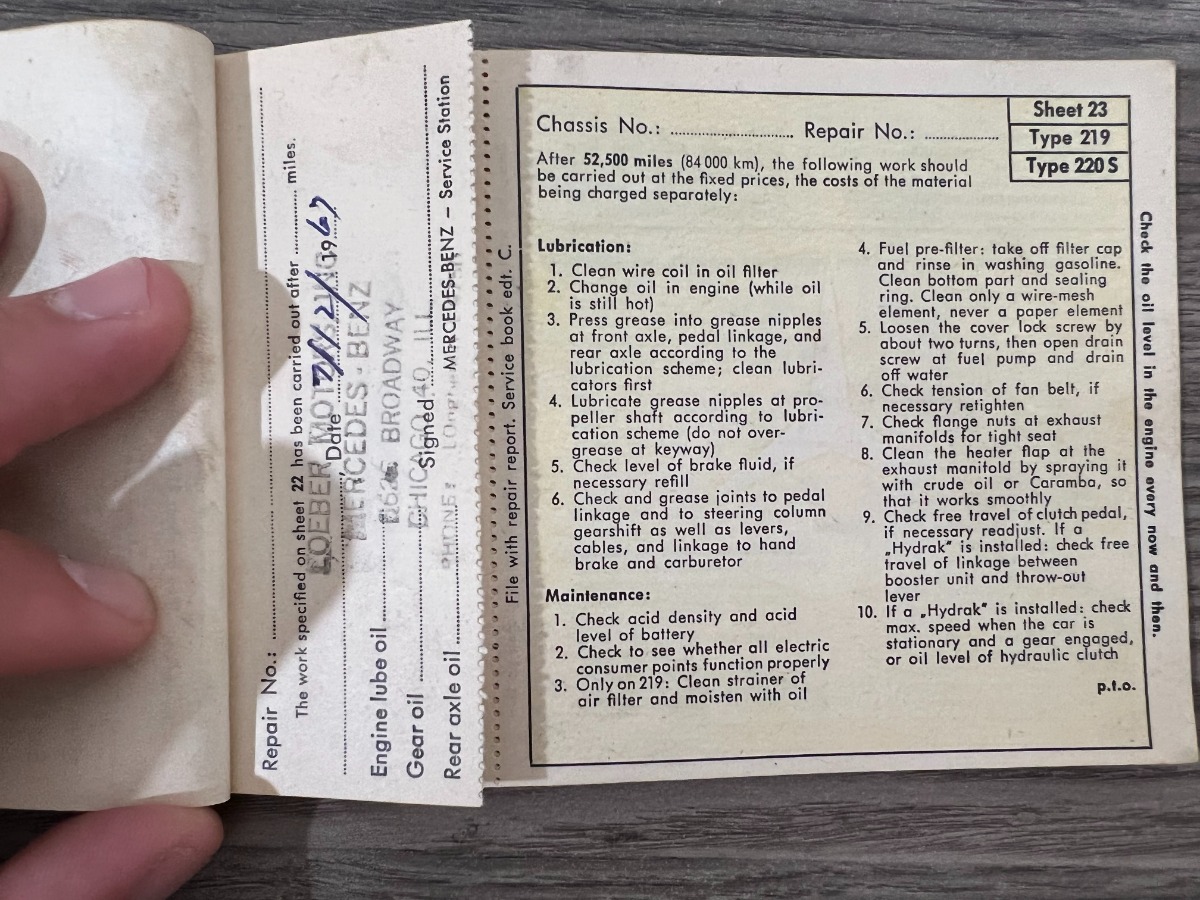 Repair No.:
The work specified on sheet 22 has been carried out after miles.
Date 7/21/1967
LOEBER MOTORS, INC.
MERCEDES-BENZ
BROADWAY
CHICAGO 40, ILL
PHONE:
Signed
Engine lube oil
Gear oil
Rear axle oil
MERCEDES-BENZ – Service Station
File with repair report. Service book edt. C.
Sheet 23
Type 219
Type 220 S
Chassis No.: Repair No.:
After 52,500 miles (84 000 km), the following work should
be carried out at the fixed prices, the costs of the material
being charged separately:
Lubrication:
1. Clean wire coil in oil filter
2. Change oil in engine (while oil
is still hot)
3. Press grease into grease nipples
at front axle, pedal linkage, and
rear axle according to the
lubrication scheme; clean lubri-
cators first
4. Lubricate grease nipples at pro-
peller shaft according to lubri-
cation scheme (do not over-
grease at keyway)
5. Check level of brake fluid, if
necessary refill
6. Check and grease joints to pedal
linkage and to steering column
gearshift as well as levers,
cables, and linkage to hand
brake and carburetor
Maintenance:
1. Check acid density and acid
level of battery
2. Check to see whether all electric
consumer points function properly
3. Only on 219: Clean strainer of
air filter and moisten with oil
4. Fuel pre-filter: take off filter cap
and rinse in washing gasoline.
Clean bottom part and sealing
ring. Clean only a wire-mesh
element, never a paper element
5. Loosen the cover lock screw by
about two turns, then open drain
screw at fuel pump and drain
off water
6. Check tension of fan belt, if
necessary retighten
7. Check flange nuts at exhaust
manifolds for tight seat
8. Clean the heater flap at the
exhaust manifold by spraying it
with crude oil or Caramba, so
that it works smoothly
9. Check free travel of clutch pedal,
if necessary readjust. If a
„Hydrak" is installed: check free
travel of linkage between
booster unit and throw-out
lever
10. If a „Hydrak" is installed: check
max. speed when the car is
stationary and a gear engaged,
or oil level of hydraulic clutch
p.t.o.
Check the oil level in the engine every now and then.